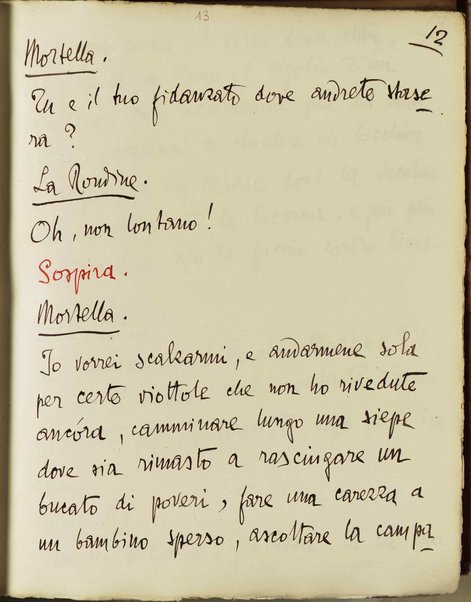 13
12
Mortella.
Tu e il tuo fidanzato dove andrete stase
ra?
La Rondine.
Oh, non lontano!
Sospira.
Mortella.
Io vorrei scalzarmi, e andarmene sola
per certe viottole che non ho rivedute
ancóra, camminare lungo una siepe
dove sia rimasto a rasciugare un
bucato di poveri, fare una carezza a
un bambino sperso, ascoltare la campa